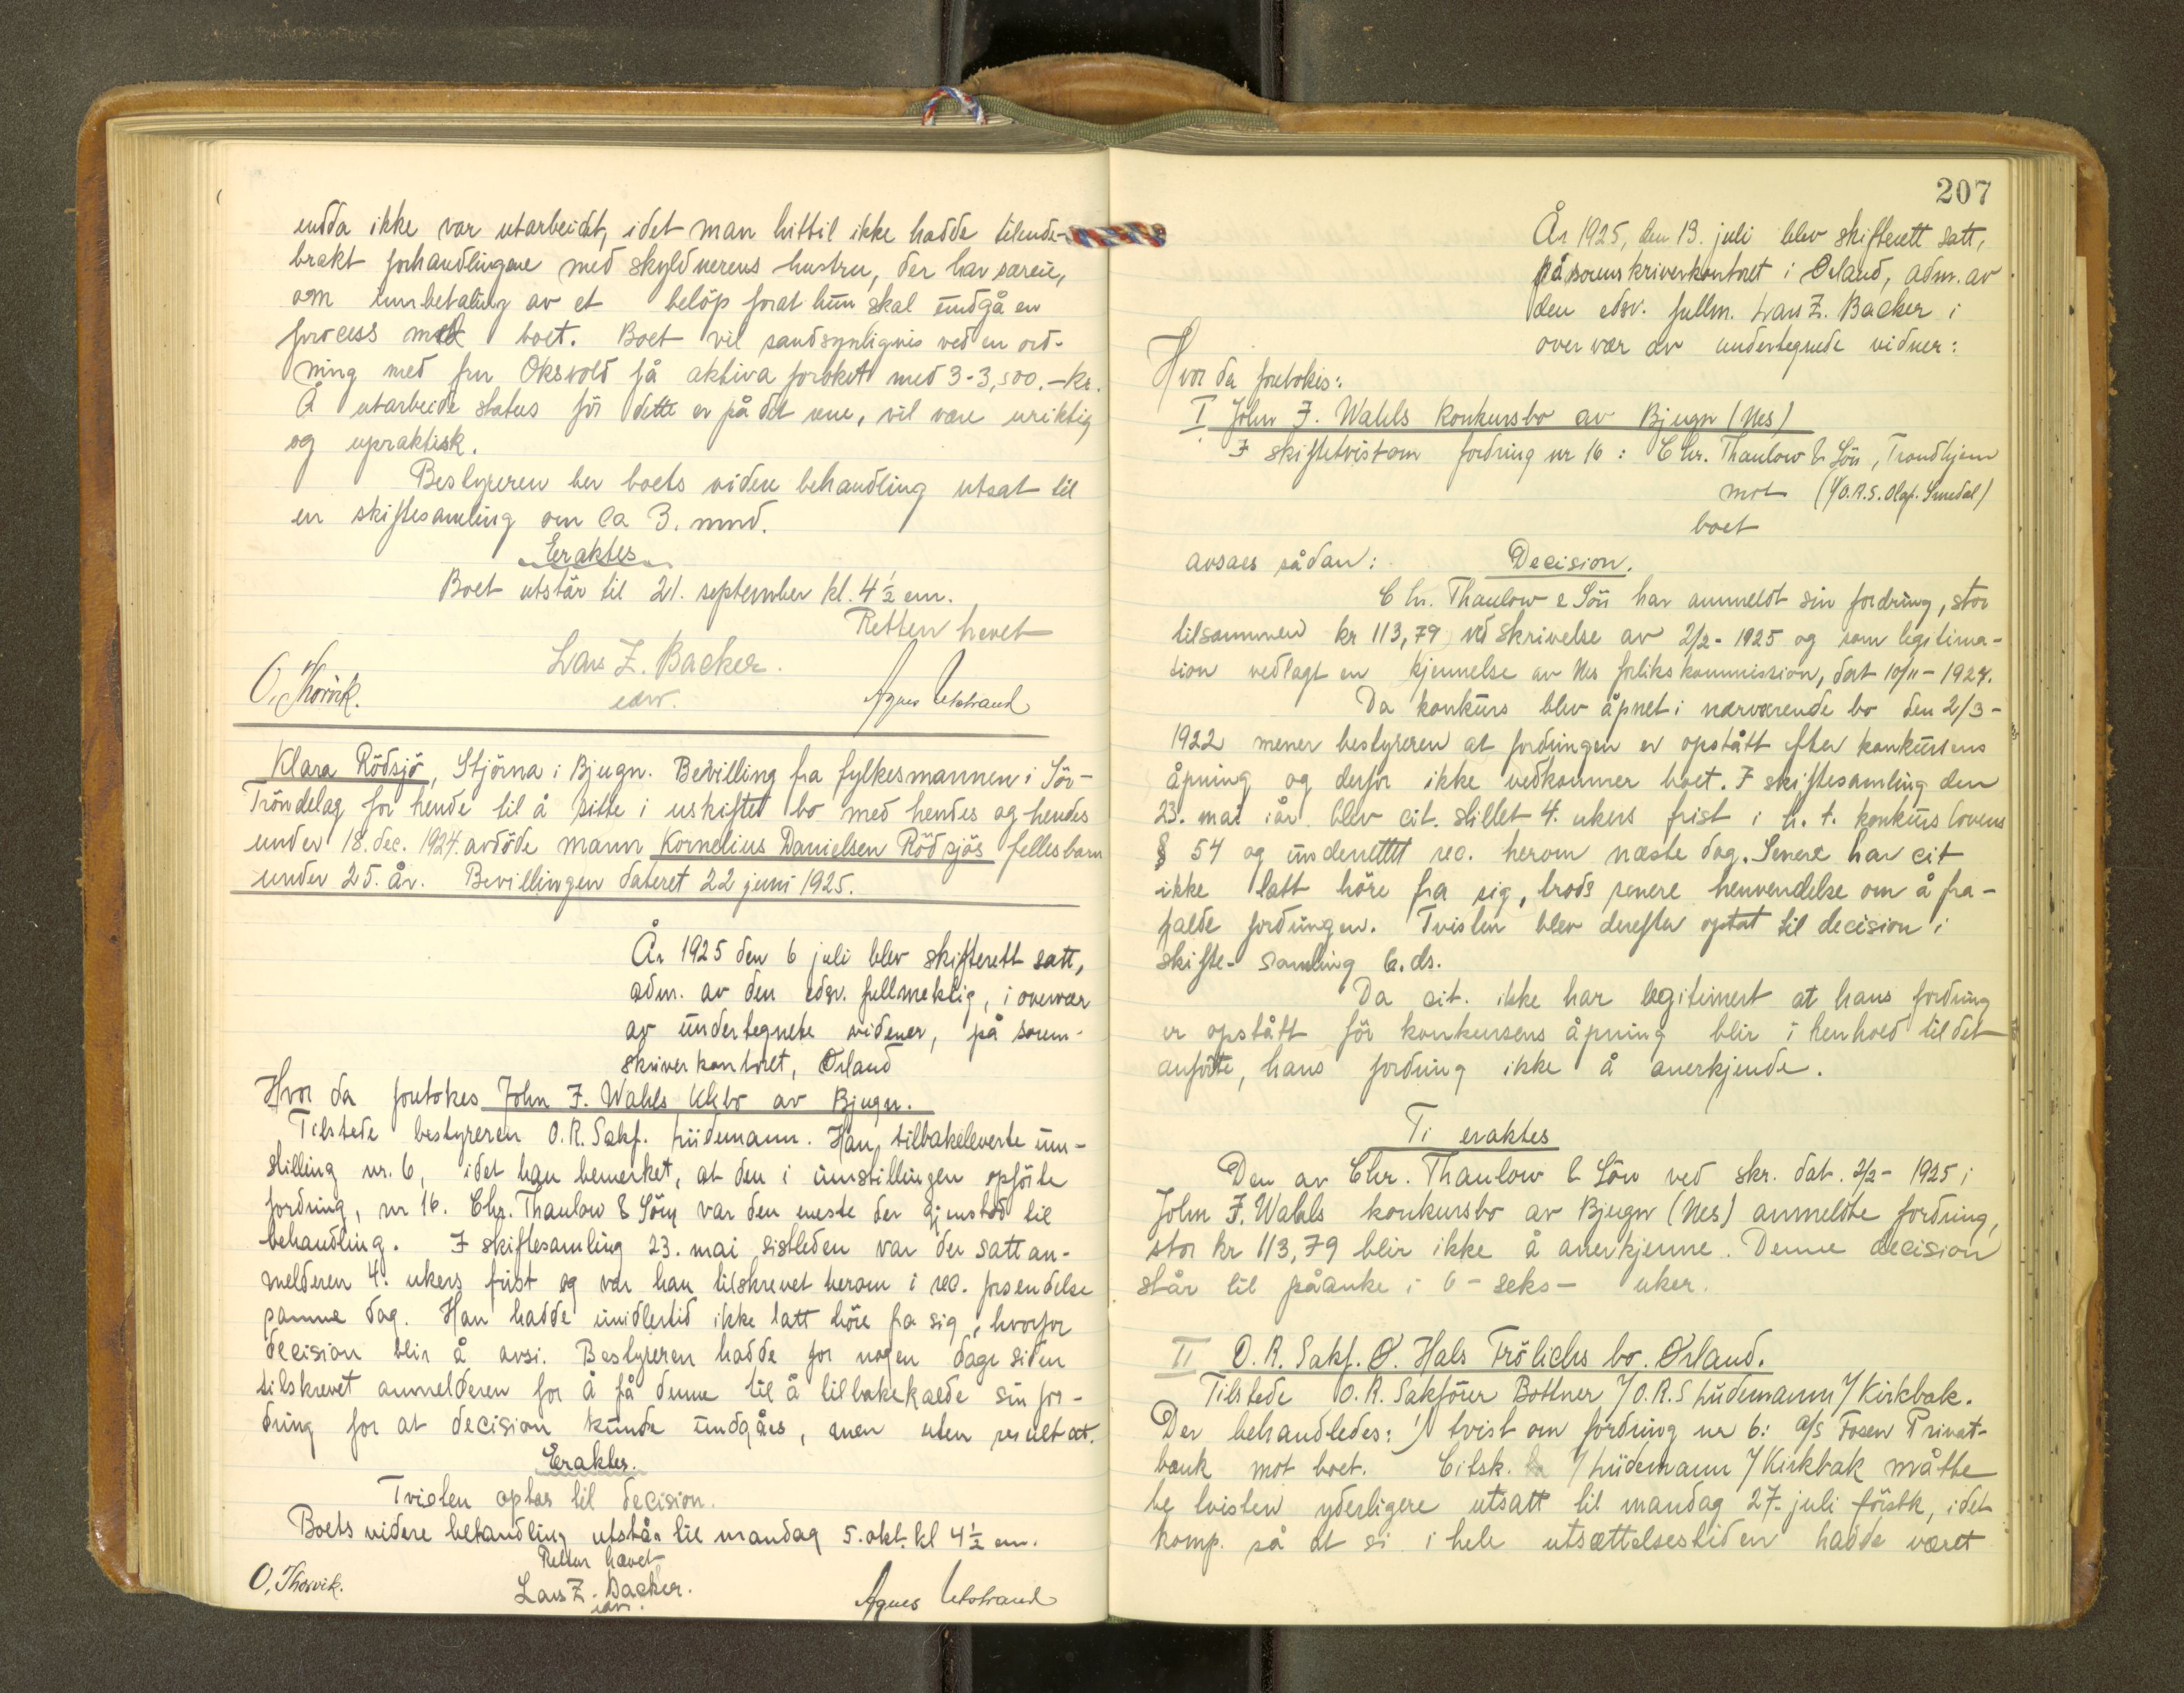 endda ikke var utarbeidet, idet man hittil ikke hadde tilende-
brakt forhandlingene med skyldnerens hustru, der har særeie,
om innbetaling av et belöp forat hun skal undgå en
process med boet. Boet vil sandsynligvis ved en ord-
ning med fru Oksvold få aktiva forøket med 3-3,500.-kr.
Å utarbeide status för dette er på det rene, vil være uriktig
og upraktisk.
Bestyreren ber boets videre behandling utsat til
en skiftesamling om ca 3. mnd.
Eraktes
Boet utstår til 21. september kl. 4 1/2 em.
Retten hevet
Lars Z. Backer.
edsv.
O. Thorvik.
Agnes Utstrand
Klara Rödsjö, Stjörna i Bjugn. Bevilling fra fylkesmannen i Sör-
Tröndelag for hende til å sitte i uskiftet bo med hendes og hendes
under 18. dec. 1924 avdöde mann Kornelius Danielsen Rödsjös fellesbarn
under 25. år. Bevillingen dateret 22 juni 1925.
År 1925 den 6 juli blev skifterett satt,
adm. av den edsv. fullmektig, i overvær
av undertegnete videner, på soren-
skriverkontoret, Ørland
Hvor da foretokes John F. Wahls kkbo av Bjugn.
Tilstede bestyreren O.R. Sakf. Lüdemann. Han tilbakeleverte inn-
stilling nr. 6, idet han bemerket, at den i innstillingen opförte
fordring, nr 16. Chr. Thaulow & Sön var den eneste der gjenstod til
behandling. I skiftesamling 23. mai sistleden var der satt an-
melderen 4. ukers frist og var han tilskrevet herom i rec. forsendelse
samme dag. Han hadde imidlertid ikke latt höre fra sig, hvorfor
decision blir å avsi. Bestyreren hadde for nogen dage siden
tilskrevet anmelderen for å få denne til å tilbakekalde sin for-
dring for at decision kunde undgåes, men uten resultat.
Eraktes.
Tvisten optas til decision.
Boets videre behandling utstår til mandag 5. okt. kl 4 1/2 em.
Retten hævet
Lars Z. Backer.
edsv.
O. Thorvik.
Agnes Utstrand
207
År 1925, den 13. juli blev skifterett satt,
på sorenskriverkontoret i Ørland, adm. av
den edsv. fullm. Lars Z. Backer i
overvær av undertegnede vidner:
Hvor da foretokes:
I John F. Wahls konkursbo av Bjugn (Nes)
I skiftetvist om fordring nr 16: Chr. Thaulow & Sön, Trondhjem
mot (v/O.R.S. Olaf. Smedal)
boet
avsaes sådan: Decision.
Chr. Thaulow & Sön har anmeldt sin fordring, stor
tilsammen kr 113,79 ved skrivelse av 2/2-1925 og som legitima-
tion vedlagt en kjennelse av Nes forlikskommission, dat 10/11-1924.
Da konkurs blev åpnet i nærværende bo den 2/3-
1922 mener bestyreren at fordringen er opstått efter konkursens
åpning og derfor ikke vedkommer boet. I skiftesamling den
23. mai iår blev cit. stillet 4. ukers frist i h. t. konkurslovens
§ 54 og underrettet rec. herom næste dag. Senere har cit
ikke latt höre fra sig, trods senere henvendelse om å fra-
falde fordringen. Tvisten blev derefter optat til decision i
skifte-samling 6. ds.
Da cit. ikke har legitimert at hans fordring
er opstått för konkursens åpning blir i henhold til det
anförte, hans fordring ikke å anerkjende.
Ti eraktes
Den av Chr. Thaulow & Sön ved skr. dat. 2/2-1925 i
John F. Wahls konkursbo av Bjugn (Nes) anmeldte fordring,
stor kr 113,79 blir ikke å anerkjenne. Denne decision
står til påanke i 6-seks- uker.
II O.R. Sakf. O. Hals Frölichs bo. Ørland.
Tilstede O.R. Sakförer Bottner f/ O.R.S Lüdemann f/ Kirkbak.
Der behandledes: 1) tvist om fordring nr 6: A/S Fosen Privat-
bank mot boet. Citsk. f/ Lüdemann f/ Kirkbak måtte
be tvisten yderligere utsatt til mandag 27. juli förstk, idet
komp. så at si i hele utsættelsestiden hadde været